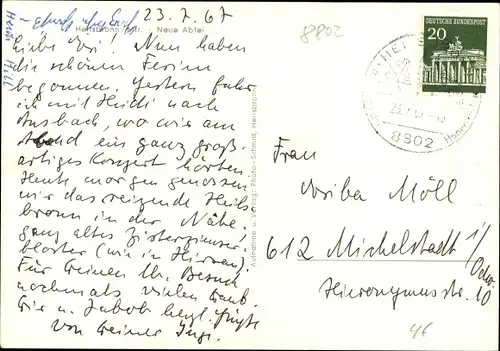 23.7.67
8802
Heilsbronn Mfr. Neue Abtei
Liebe Dori! Nun haben
die schönen Ferien
begonnen. Gestern fuhr
ich mit Heidi nach
Ansbach, wo wir am
Abend ein ganz groß-
artiges Konzert hörten.
Heute morgen genossen
wir das reizende Heils-
bronn in der Nähe.
ganz altes Zisterzienser-
kloster (wie in Hirsau).
Für Deinen lb. Besuch
nochmals vielen Dank
Dir u. Jakob herzl. Grüße
von Deiner Inge.
Aufnahme u. Verlag: Photo-Schmidt, Heilsbronn
DEUTSCHE BUNDESPOST
20
8802
Frau
Doriba Möll
612 Michelstadt i/
Odw.
Hieronymusstr. 10
4€